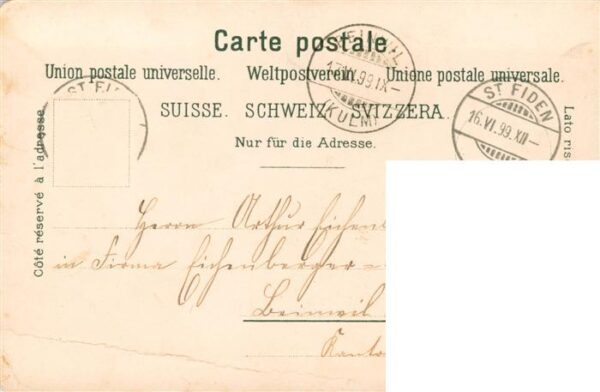 Carte postale.
Union postale universelle. Weltpostverein. Unione postale universale.
SUISSE. SCHWEIZ. SVIZZERA.
Nur für die Adresse.
Côté réservé à l'adresse.
Lato ris
ST. FI
17.VI.99.IX–
(KULM)
ST FIDEN
16.VI.99.XII–
Herrn Arthur Eichenb
in Firma Eichenberger-
Beinwil
Kanto